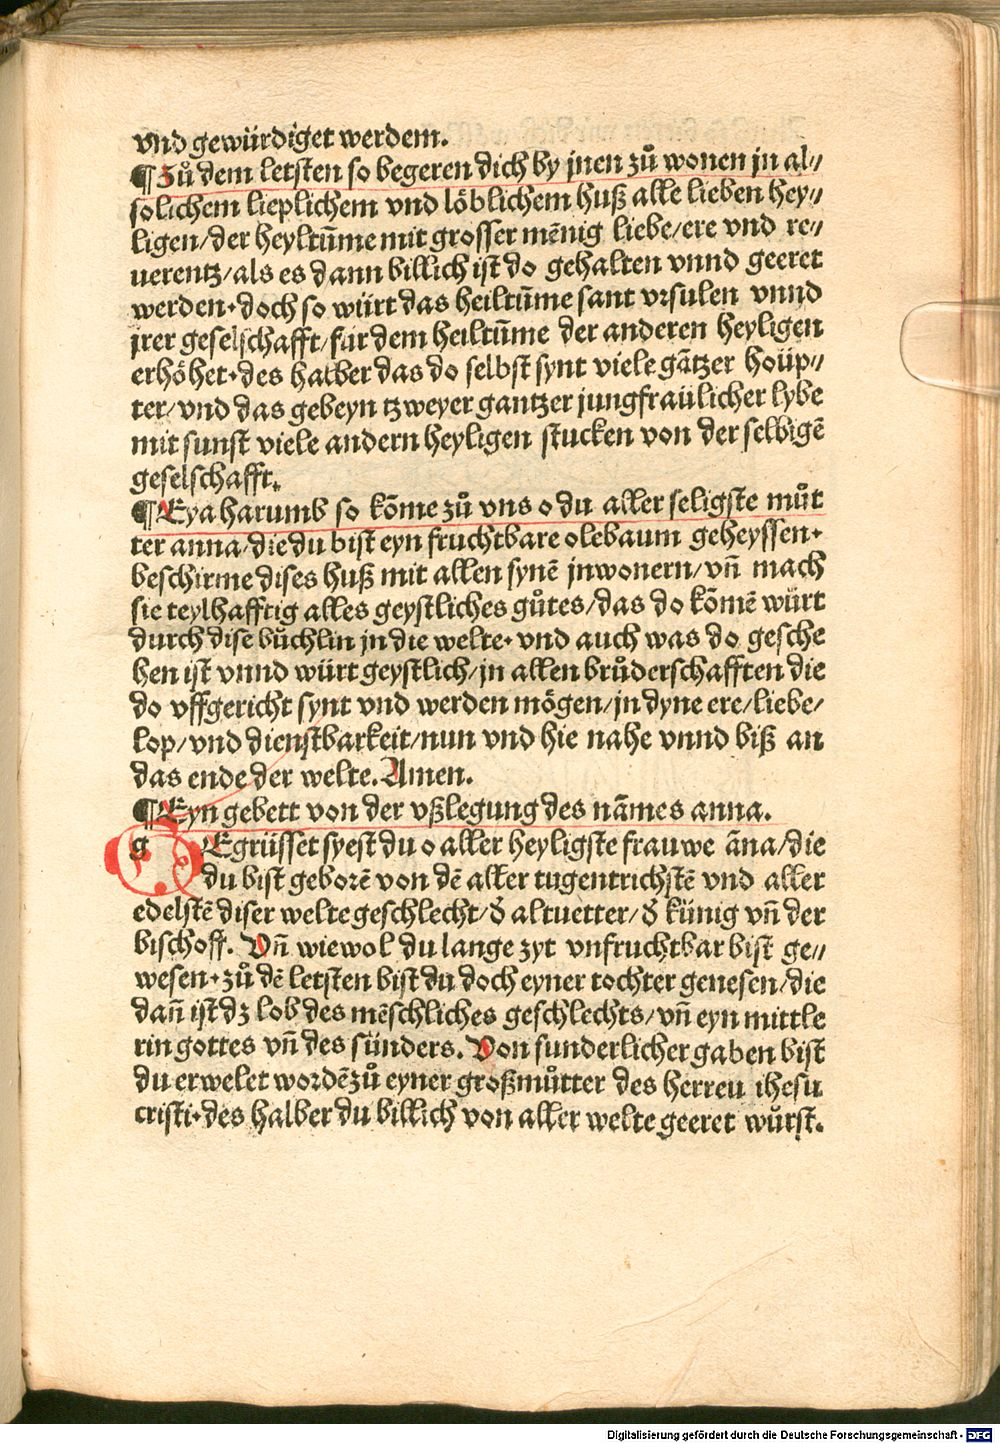 vnd gewürdiget werdem.
¶ Zů dem letsten so begeren dich by jnen zů wonen jn al⸗
solichem lieplichem vnd löblichem huß alle lieben hey⸗
ligen/der heyltūme mit grosser mēnig liebe/ere vnd re⸗
uerentz/als es dann billich ist do gehalten vnnd geeret
werden. doch so würt das heiltūme sant vrsulen vnnd
jrer geselschafft/für dem heiltūme der anderen heyligen
erhöhet. des halber das do selbst synt viele gātzer hoüp⸗
ter/vnd das gebeyn tzweyer gantzer jungfraülicher lybe
mit sunst viele andern heyligen stucken von der selbigē
geselschafft.
¶ Eya harumb so kōme zů vns o du aller seligste můt
ter anna/die du bist eyn fruchtbare olebaum geheyssen.
beschirme dises huß mit allen synē jnwonern/vn̄ mach
sie teylhafftig alles geystliches gůtes/das do kōmē würt
durch dise bůchlin jn die welte. vnd auch was do gesche
hen ist vnnd würt geystlich/jn allen brůderschafften die
do vffgericht synt vnd werden mögen/jn dyne ere/liebe/
lop/vnd dienstbarkeit/nun vnd hie nahe vnnd biß an
das ende der welte. Amen.
¶ Eyn gebett von der vßlegung des nāmes anna.
g Egrüsset syest du o aller heyligste frauwe āna/die
du bist geborē von dē aller tugentrichstē vnd aller
edelstē diser welte geschlecht/d̄ altuetter/d̄ künig vn̄ der
bischoff. Vn̄ wiewol du lange zyt vnfruchtbar bist ge⸗
wesen. zů dē letsten bist du doch eyner tochter genesen/die
dan̄ ist dz lob des mēschliches geschlechts/vn̄ eyn mittle
rin gottes vn̄ des sünders. Von sunderlicher gaben bist
du erwelet wordē zů eyner großmůtter des herreu ihesu
cristi. des halber du billich von aller welte geeret würst.
Digitalisierung gefördert durch die Deutsche Forschungsgemeinschaft - DFG